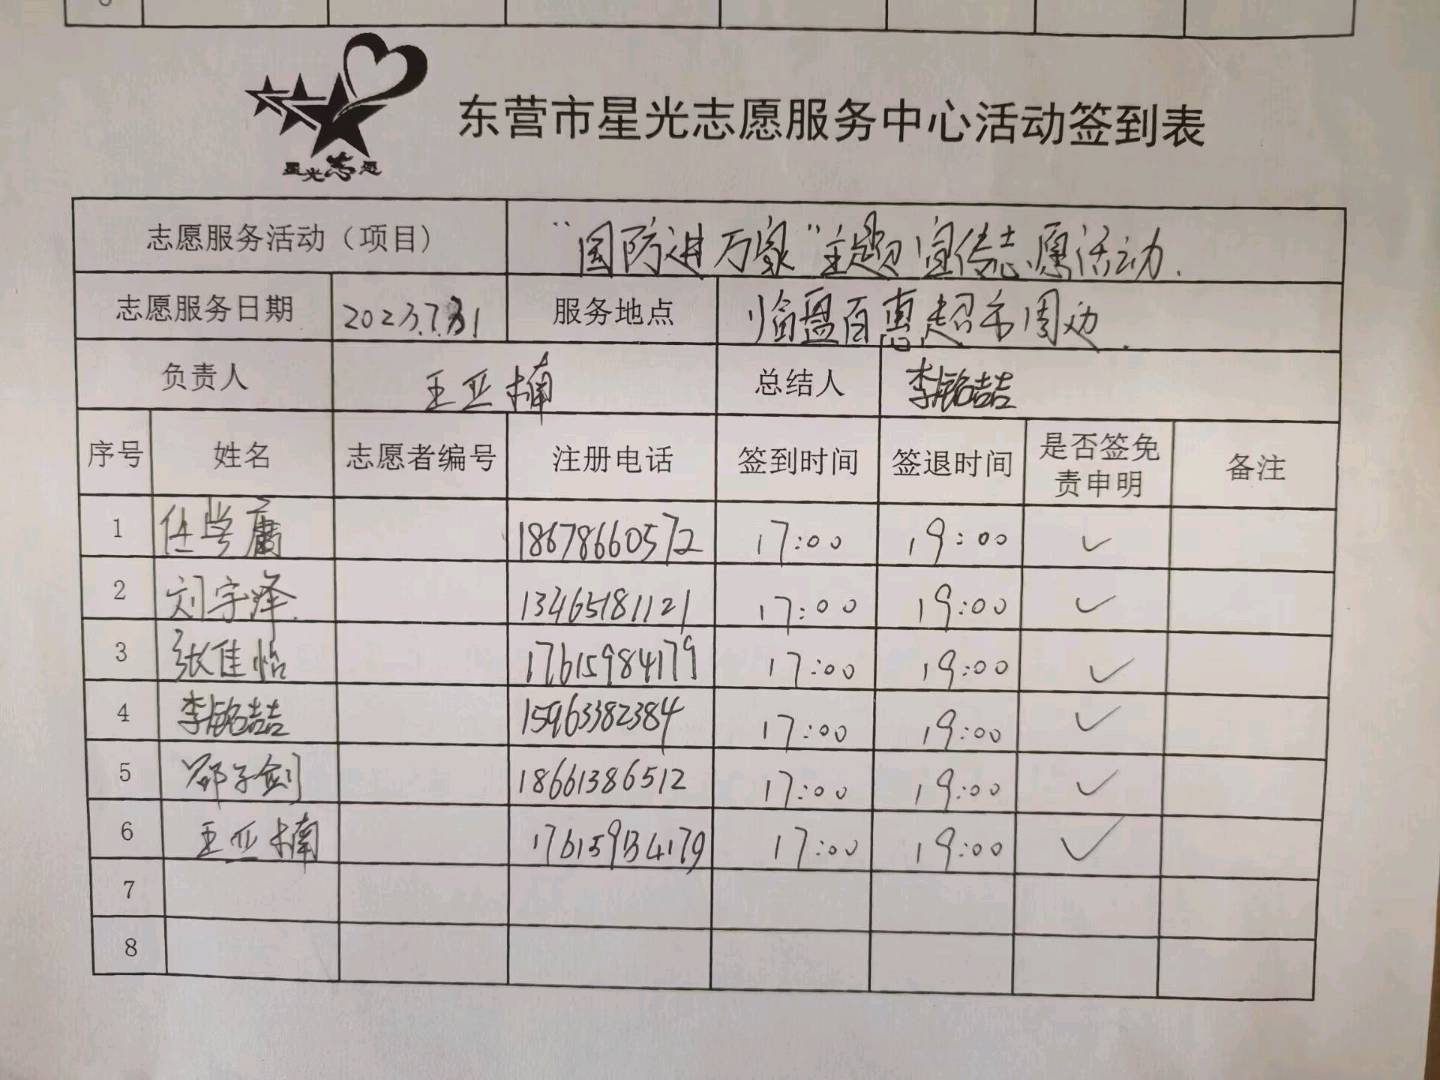 星光志愿
东营市星光志愿服务中心活动签到表
志愿服务活动（项目） “国防进万家”主题宣传志愿活动.
志愿服务日期 2023.7.31 服务地点 临盘百惠超市周边.
负责人 王亚楠 总结人 李铭喆
序号 姓名 志愿者编号 注册电话 签到时间 签退时间 是否签免责申明 备注
1 任学庸 18678660572 17:00 19:00 ✓
2 刘宇泽. 13465181121 17:00 19:00 ✓
3 张佳怡 17615984179 17:00 19:00 ✓
4 李铭喆 15963382384 17:00 19:00 ✓
5 邹子剑 18661386512 17:00 19:00 ✓
6 王亚楠 17615934179 17:00 19:00 ✓
7
8